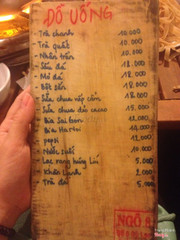 ĐỒ UỐNG
- Trà chanh 10.000
- Trà quất 10.000
- Nhân trần 10.000
- Sấu đá 12.000
- Mơ đá 12.000
- Bột sắn 18.000
- Sữa chua nếp cẩm 18.000
- Sữa chua đá cacao 15.000
- Bia Sài Gòn
- Bia Ha Noi
- pepsi 12.000
- Nước suối 10.000
- Lạc rang húng lìu 5.000
- Khăn lạnh 2.000
- Trà đá 5.000
NGÕ